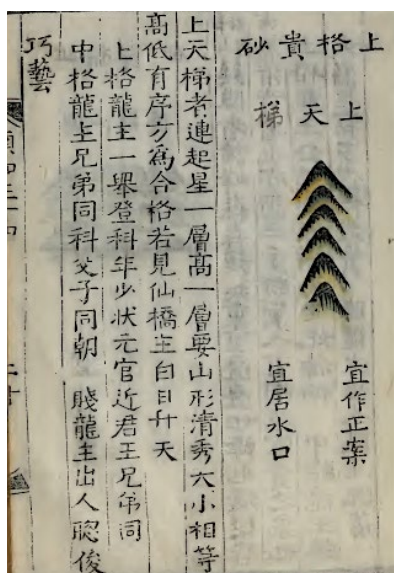 上格貴砂
上天梯
宜作正案
宜居水口
上天梯者連起星一層高一層要山形清秀大小相等
高低有序方為合格若見仙橋主白日升天
上格龍主一舉登科年少狀元官近君王兄弟同
中格龍主兄弟同科父子同朝 賤龍主出人聰俊
巧藝